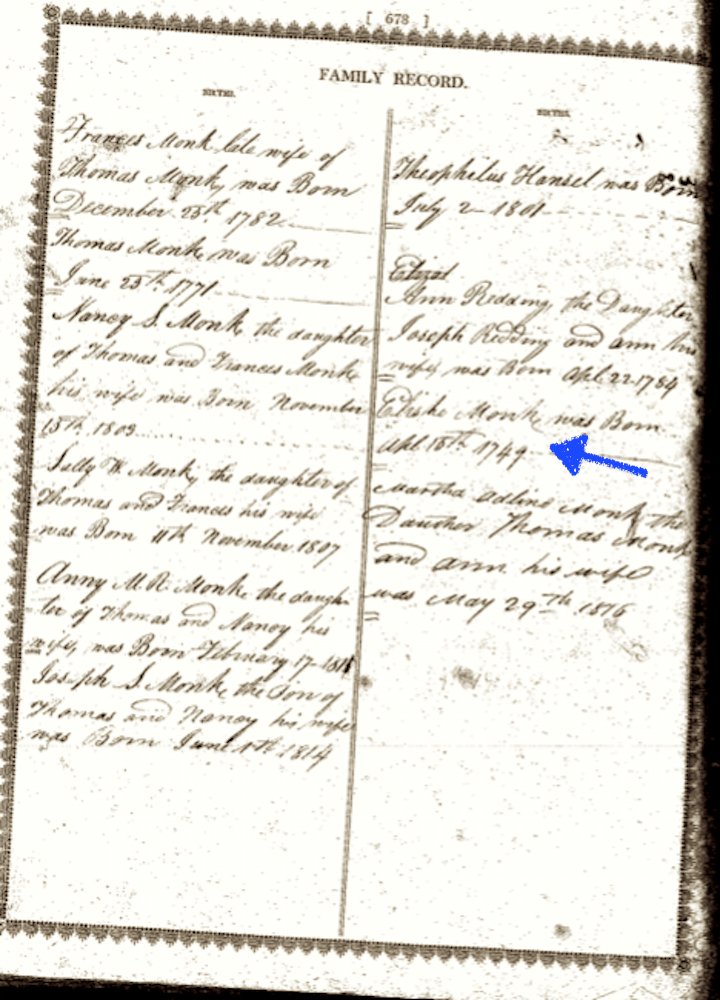 [ 678 ]
FAMILY RECORD.
BIRTHS.
Frances Monk late wife of
Thomas Monk, was Born
December 25th 1782
Thomas Monk was Born
June 25th 1771
Nancy S. Monk the daughter
of Thomas and Frances Monk
his wife was Born November
15th 1803
Sally W. Monk, the daughter of
Thomas and Frances his wife
was Born 11th November 1807
Anny M.R. Monk the daugh-
ter of Thomas and Nancy his
wife, was Born February 17-
Joseph S. Monk the Son of
Thomas and Nancy his wife
was Born June 1814
BIRTHS.
Theophilus Hansel was Born
July 2 - 1801
Ann Redding the Daughter
Joseph Redding and ann his
wife was Born Apl. 22 1784
Monk was Born
Apl 18th 1749
Martha Adline Monk the
Dauther Thomas Monk
and ann his wife
was May 29th 1816